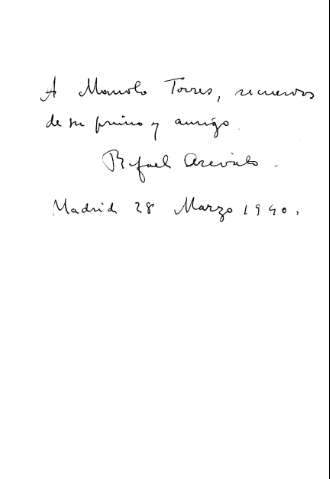 A Manolo Torres, recuerdos
de su primo y amigo.
Rafael Arévalo.
Madrid 28 Marzo 1940.